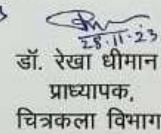 28.11.23
डॉ. रेखा धीमान
प्राध्यापक,
चित्रकला विभाग